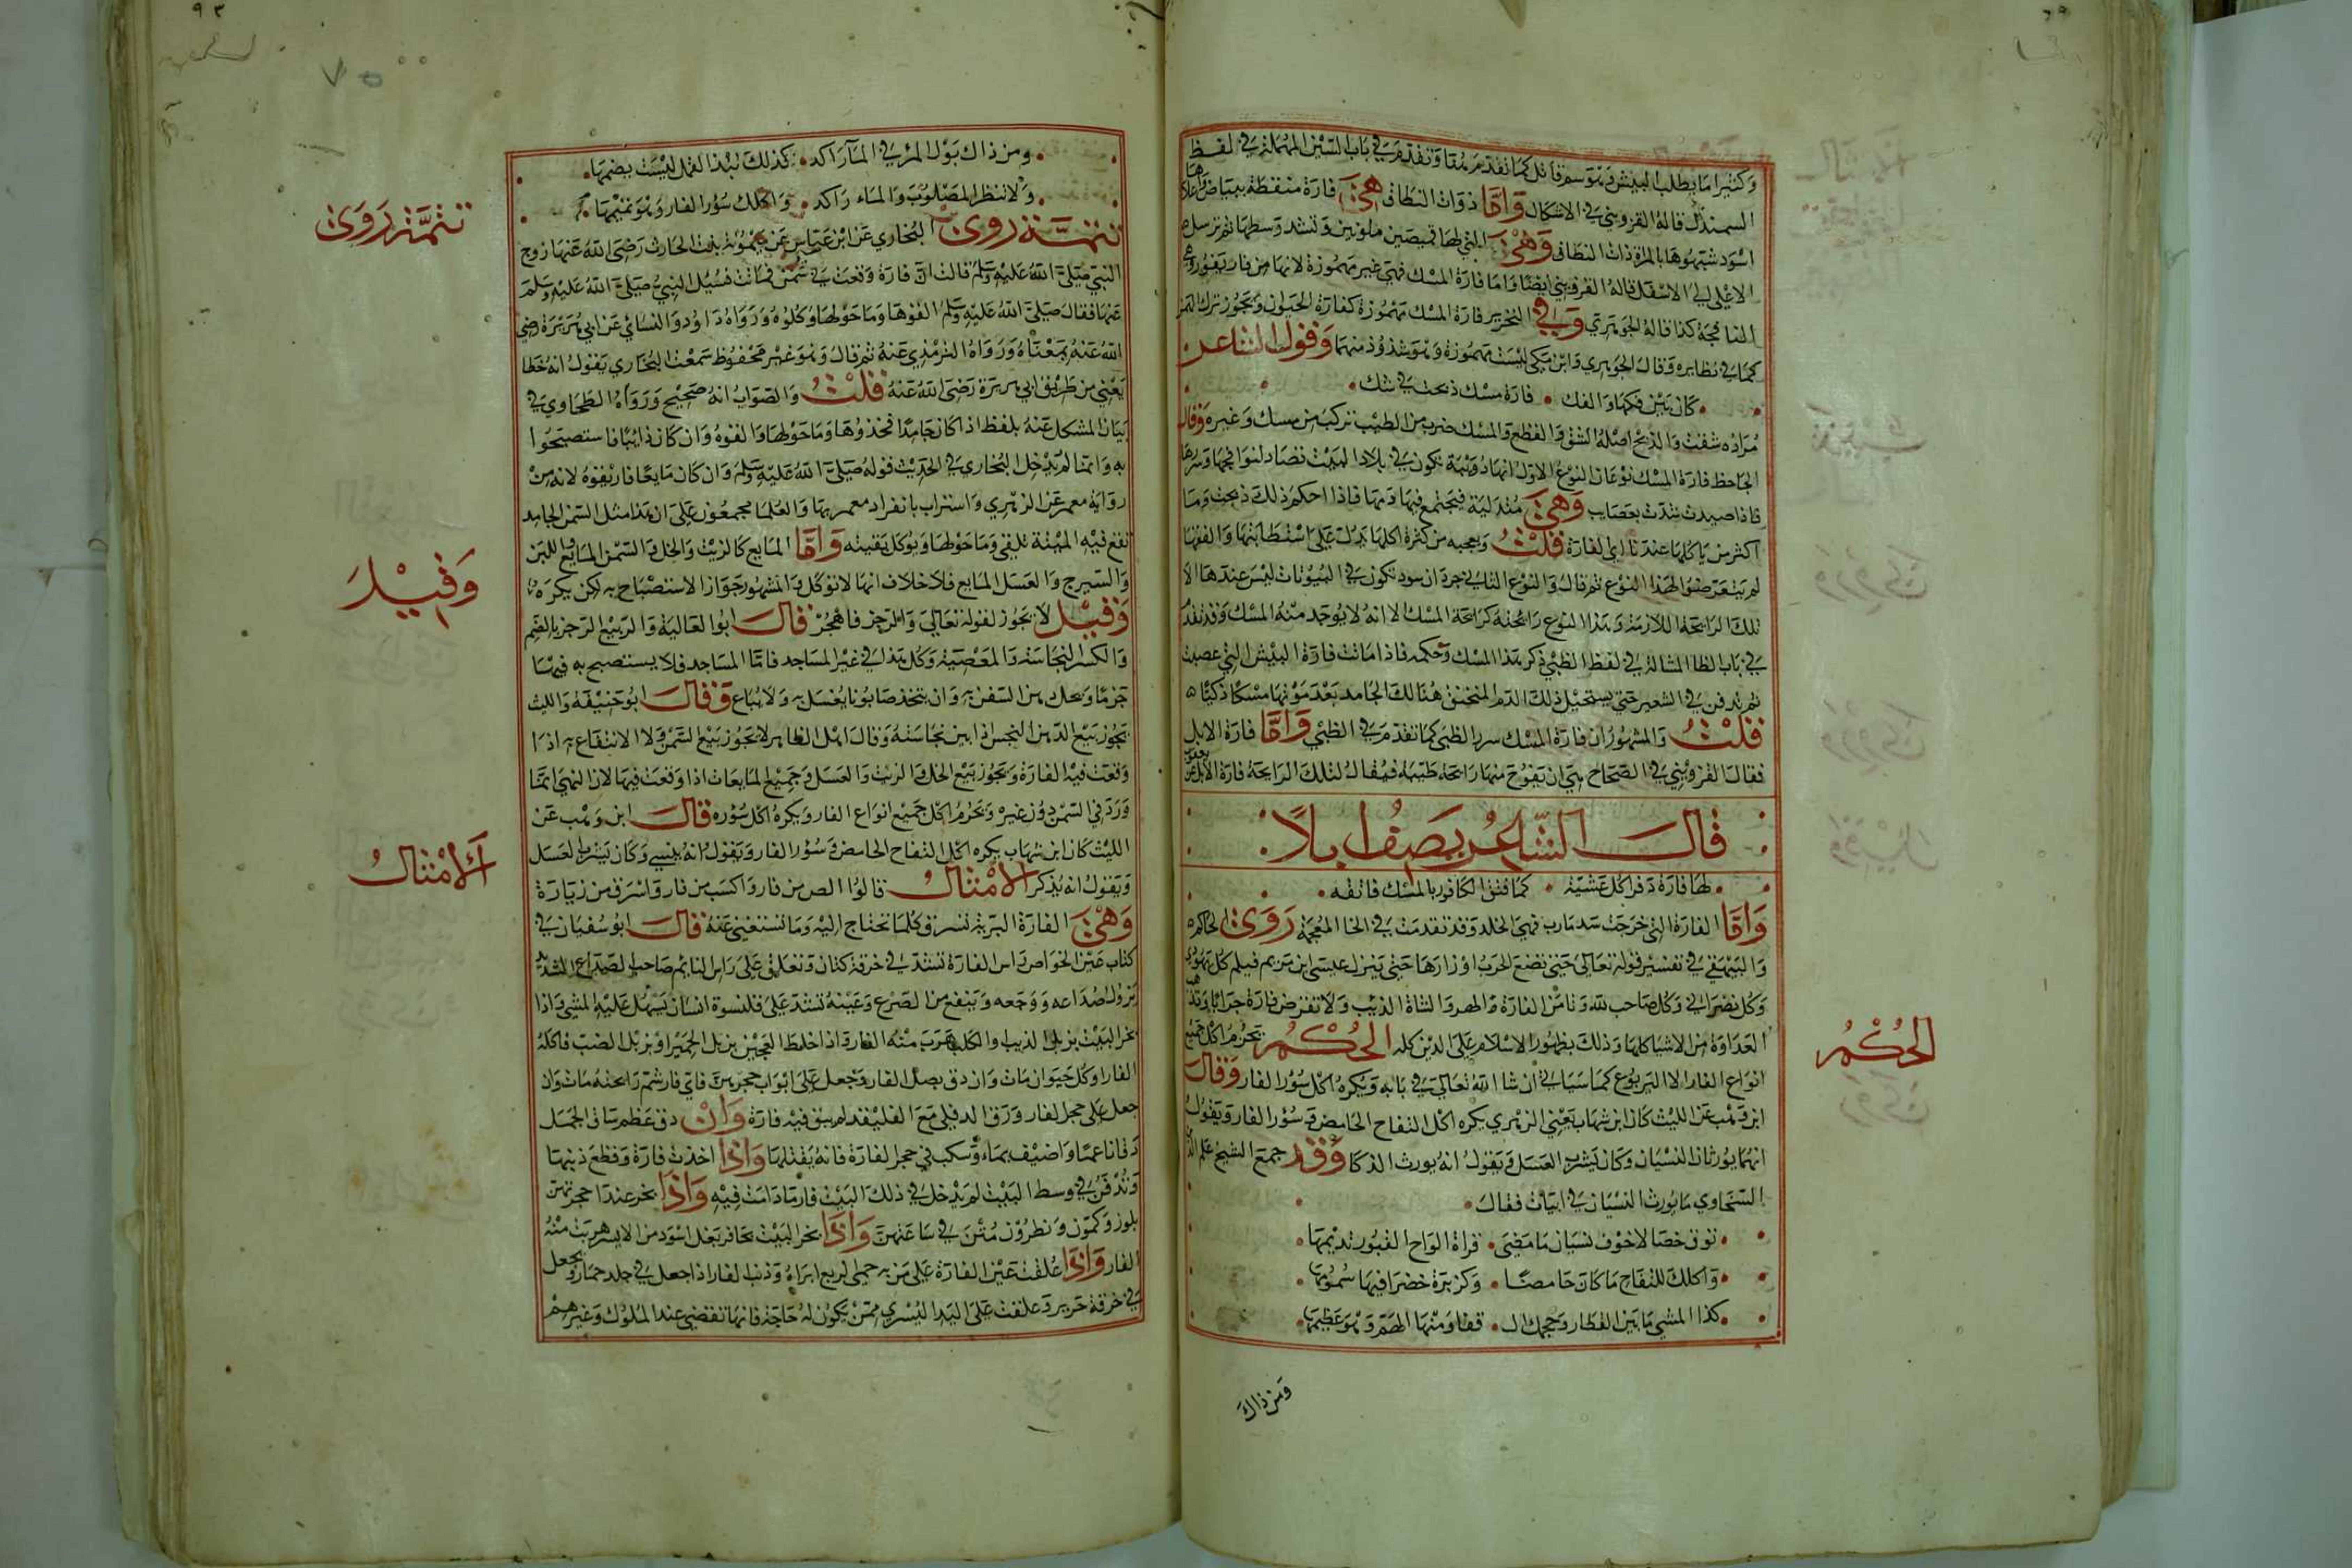 وكثيرا ما يطلب البيش وهو سم قاتل كما تقدم وتقدم في باب السين المهملة في لفظ
السمندل قاله القزويني في الاشكال واما ذوات النطاق هي فارة منقطة ببياض
اسود شبهوها بالمراة ذات النطاق وهي التي لها قميصين ملونين وتشد وسطها ثم ترسل
الاعلى الى الاسفل قاله القزويني ايضا واما فارة المسك فهي غير مهموزة لانها من فار يفور
النافجة كذا قاله الجوهري وفي التحرير فارة المسك مهموزة كفارة الحيوان ويجوز ترك الهمز
كما في نظايره وقال الجوهري وابن مكي ليست مهموزة وهو شذوذ منهما وقول الشاعر
كان بين فكها والفك • فارة مسك ذبحت في سك
مراده شقت والذبح اصله الشق والقطع والسك ضرب من الطيب تركب من مسك وغيره وقال
الجاحظ فارة المسك نوعان النوع الاول انها دويبة تكون في بلاد التبت تصاد لنوافجها وسررها
فاذا صيدت شدت بعصايب وهي متدلية فيجتمع فيها دمها فاذا احكم ذلك ذبحت وما
اكثر من ياكلها عندنا اي الفارة قلت ويعجبه من كثرة اكلها يدل على استطابتها والفقها
لم يتعرضوا لهذا النوع ثم قال والنوع الثاني جرذان سود تكون في البيوت ليس عندها الا
تلك الرايحة اللازمة وهذا النوع رايحته كرايحة المسك الا انه لا يوجد منه المسك وقد تقدم
في باب الظا المشالة في لفظ الظبي ذكر هذا المسك وحكمه فاذا ماتت فارة البيش التي عصبت
ثم تدفن في الشعير حتى يستحيل ذلك الدم المختنق هنالك الجامد بعد موتها مسكا ذكيا
قلت والمشهور ان فارة المسك سرر الظبي كما تقدم في الظبي واما فارة الابل
فقال القزويني في الصحاح هي ان تفوح منها رايحة طيبة فيقال لتلك الرايحة فارة الابل
قال الشاعر يصف ابلا
لها فارة ذفرا كل عشية • كما فتق الكافور بالمسك فاتقه
واما الفارة التي خرجت سد مارب فهي الخلد وقد تقدمت في الخا المعجمة روى الحاكم
والبيهقي في تفسير قوله تعالى حتى تضع الحرب اوزارها حتى ينزل عيسى ابن مريم فيسلم كل يهودي
وكل نصراني وكل صاحب ملة وتامن الفارة الهر والشاة الذيب ولا تقرض فارة جرابا وتذهب
العداوة من الاشيا كلها وذلك بظهور الاسلام على الدين كله الحكم يحرم اكل جميع
انواع الفار الا اليربوع كما سياتي ان شا الله تعالى في بابه ويكره اكل سؤر الفار وقال
ابن وهب عن الليث كان ابن شهاب يعني الزهري يكره اكل التفاح الحامض وسؤر الفار ويقول
انهما يورثان النسيان وكان يشرب العسل ويقول انه يورث الذكا وقد جمع الشيخ علم الدين
السخاوي ما يورث النسيان في ابيات فقال
توق خصالا خوف نسيان ما مضى • قراة الواح القبور تديمها
واكلك للتفاح ما كان حامضا • وكزبرة خضرا فيها سمومها
كذا المشي ما بين القطار وحجمك ال • قفا ومنها الهم وهو عظيمها
ومن ذاك
الحكم
ومن ذاك بول المرء في الماء راكد • كذلك نبذ القمل ليست يضمها
ولا تنظر المصلوب والماء راكد • واكلك سؤر الفار وهو تميمها
تتمة روى البخاري عن ابن عباس عن ميمونة بنت الحارث رضى الله عنها زوج
النبي صلى الله عليه وسلم قالت ان فارة وقعت في سمن فماتت فسئل النبي صلى الله عليه وسلم
عنها فقال صلى الله عليه وسلم القوها وما حولها وكلوه ورواه داود والنسائي عن ابي هريرة رضي
الله عنه بمعناه ورواه الترمذي عنه ثم قال وهو غير محفوظ سمعت البخاري يقول انه خطا
يعني من طريق ابي هريرة رضى الله عنه قلت والصواب انه صحيح ورواه الطحاوي في
بيان المشكل عنه بلفظ اذا كان جامدا فخذوها وما حولها والقوه وان كان ذايبا فاستصبحوا
به وانما لم يدخل البخاري في الحديث قوله صلى الله عليه وسلم وان كان مايعا فاريقوه لانه من
رواية معمر عن الزهري واستراب بانفراد معمر بها والعلما مجمعون على ان هذا مثل السمن الجامد
تقع فيه الميتة تلقى وما حولها ويوكل بقيته واما المايع كالزيت والخل والسمن المايع واللبن
والسيرج والعسل المايع فلا خلاف انها لا توكل والمشهور جواز الاستصباح به لكن يكره
وقيل لا يجوز لقوله تعالى والرجز فاهجر قال ابو العالية والربيع الرجز بالضم
والكسر النجاسة والمعصية وكل هذا في غير المساجد فاما المساجد فلا يستصبح به فيها
جزما ويحل دهن السفن به وان يتخذ صابونا يغسل به ولا يباع وقال ابو حنيفة والليث
يجوز بيع الدهن النجس اذا بين نجاسته وقال اهل الظاهر لا يجوز بيع السمن ولا الانتفاع به اذا
وقعت فيه الفارة ويجوز بيع الخل والزيت والعسل وجميع المايعات اذا وقعت فيها لان النهي انما
ورد في السمن دون غيره ويحرم اكل جميع انواع الفار ويكره اكل سؤره قال ابن وهب عن
الليث كان ابن شهاب يكره اكل التفاح الحامض وسؤر الفار ويقول انه ينسي وكان يشرب العسل
ويقول انه يذكر الامثال قالوا الص من فار واكسب من فار واسرق من زبابة
وهي الفارة البرية تسرق كلما تحتاج اليه وما تستغني عنه قال ابو سفيان في
كتاب عين الخواص راس الفارة تشد في خرقة كتان وتعلق على راس النايم صاحب الصداع الشديد
يزول صداعه ووجعه وينفع من الصرع وعينه تشد على قلنسوة انسان يسهل عليه المشي واذا
بخر البيت بزبل الذيب والكلب هرب منه الفار واذا خلط العجين بزبل الحمير او بزبل الضب فاكله
الفار او كل حيوان مات وان دق بصل الفار وجعل على ابواب حجرهن فاي فار شم رايحته مات وان
جعل على حجر الفار ورق الدفلى مع القليقند لم يبق فيه فارة وان دق عظم ساق الجمل
دقا ناعما واضيف بماء وسكب في حجر الفارة فانه يقتلها واذا اخذت فارة وقطع ذنبها
وتدفن في وسط البيت لم يدخل في ذلك البيت فار ما دامت فيه واذا بخر عند حجرتهن
بلوز وكمون ونطرون متن في ساعتهن واذا بخر البيت بحافر بغل اسود من الايسر هربت منه
الفار واذا علقت عين الفارة على من به حمى الربع ابراه وذنب الفار اذا جعل في جلد حمار وجعل
في خرقة حرير وعلقت على اليد اليسرى ممن يكون له حاجة فانها تقضى عند الملوك وغيرهم
تتمة روى
وقيل
الامثال
٩٣
٧٥